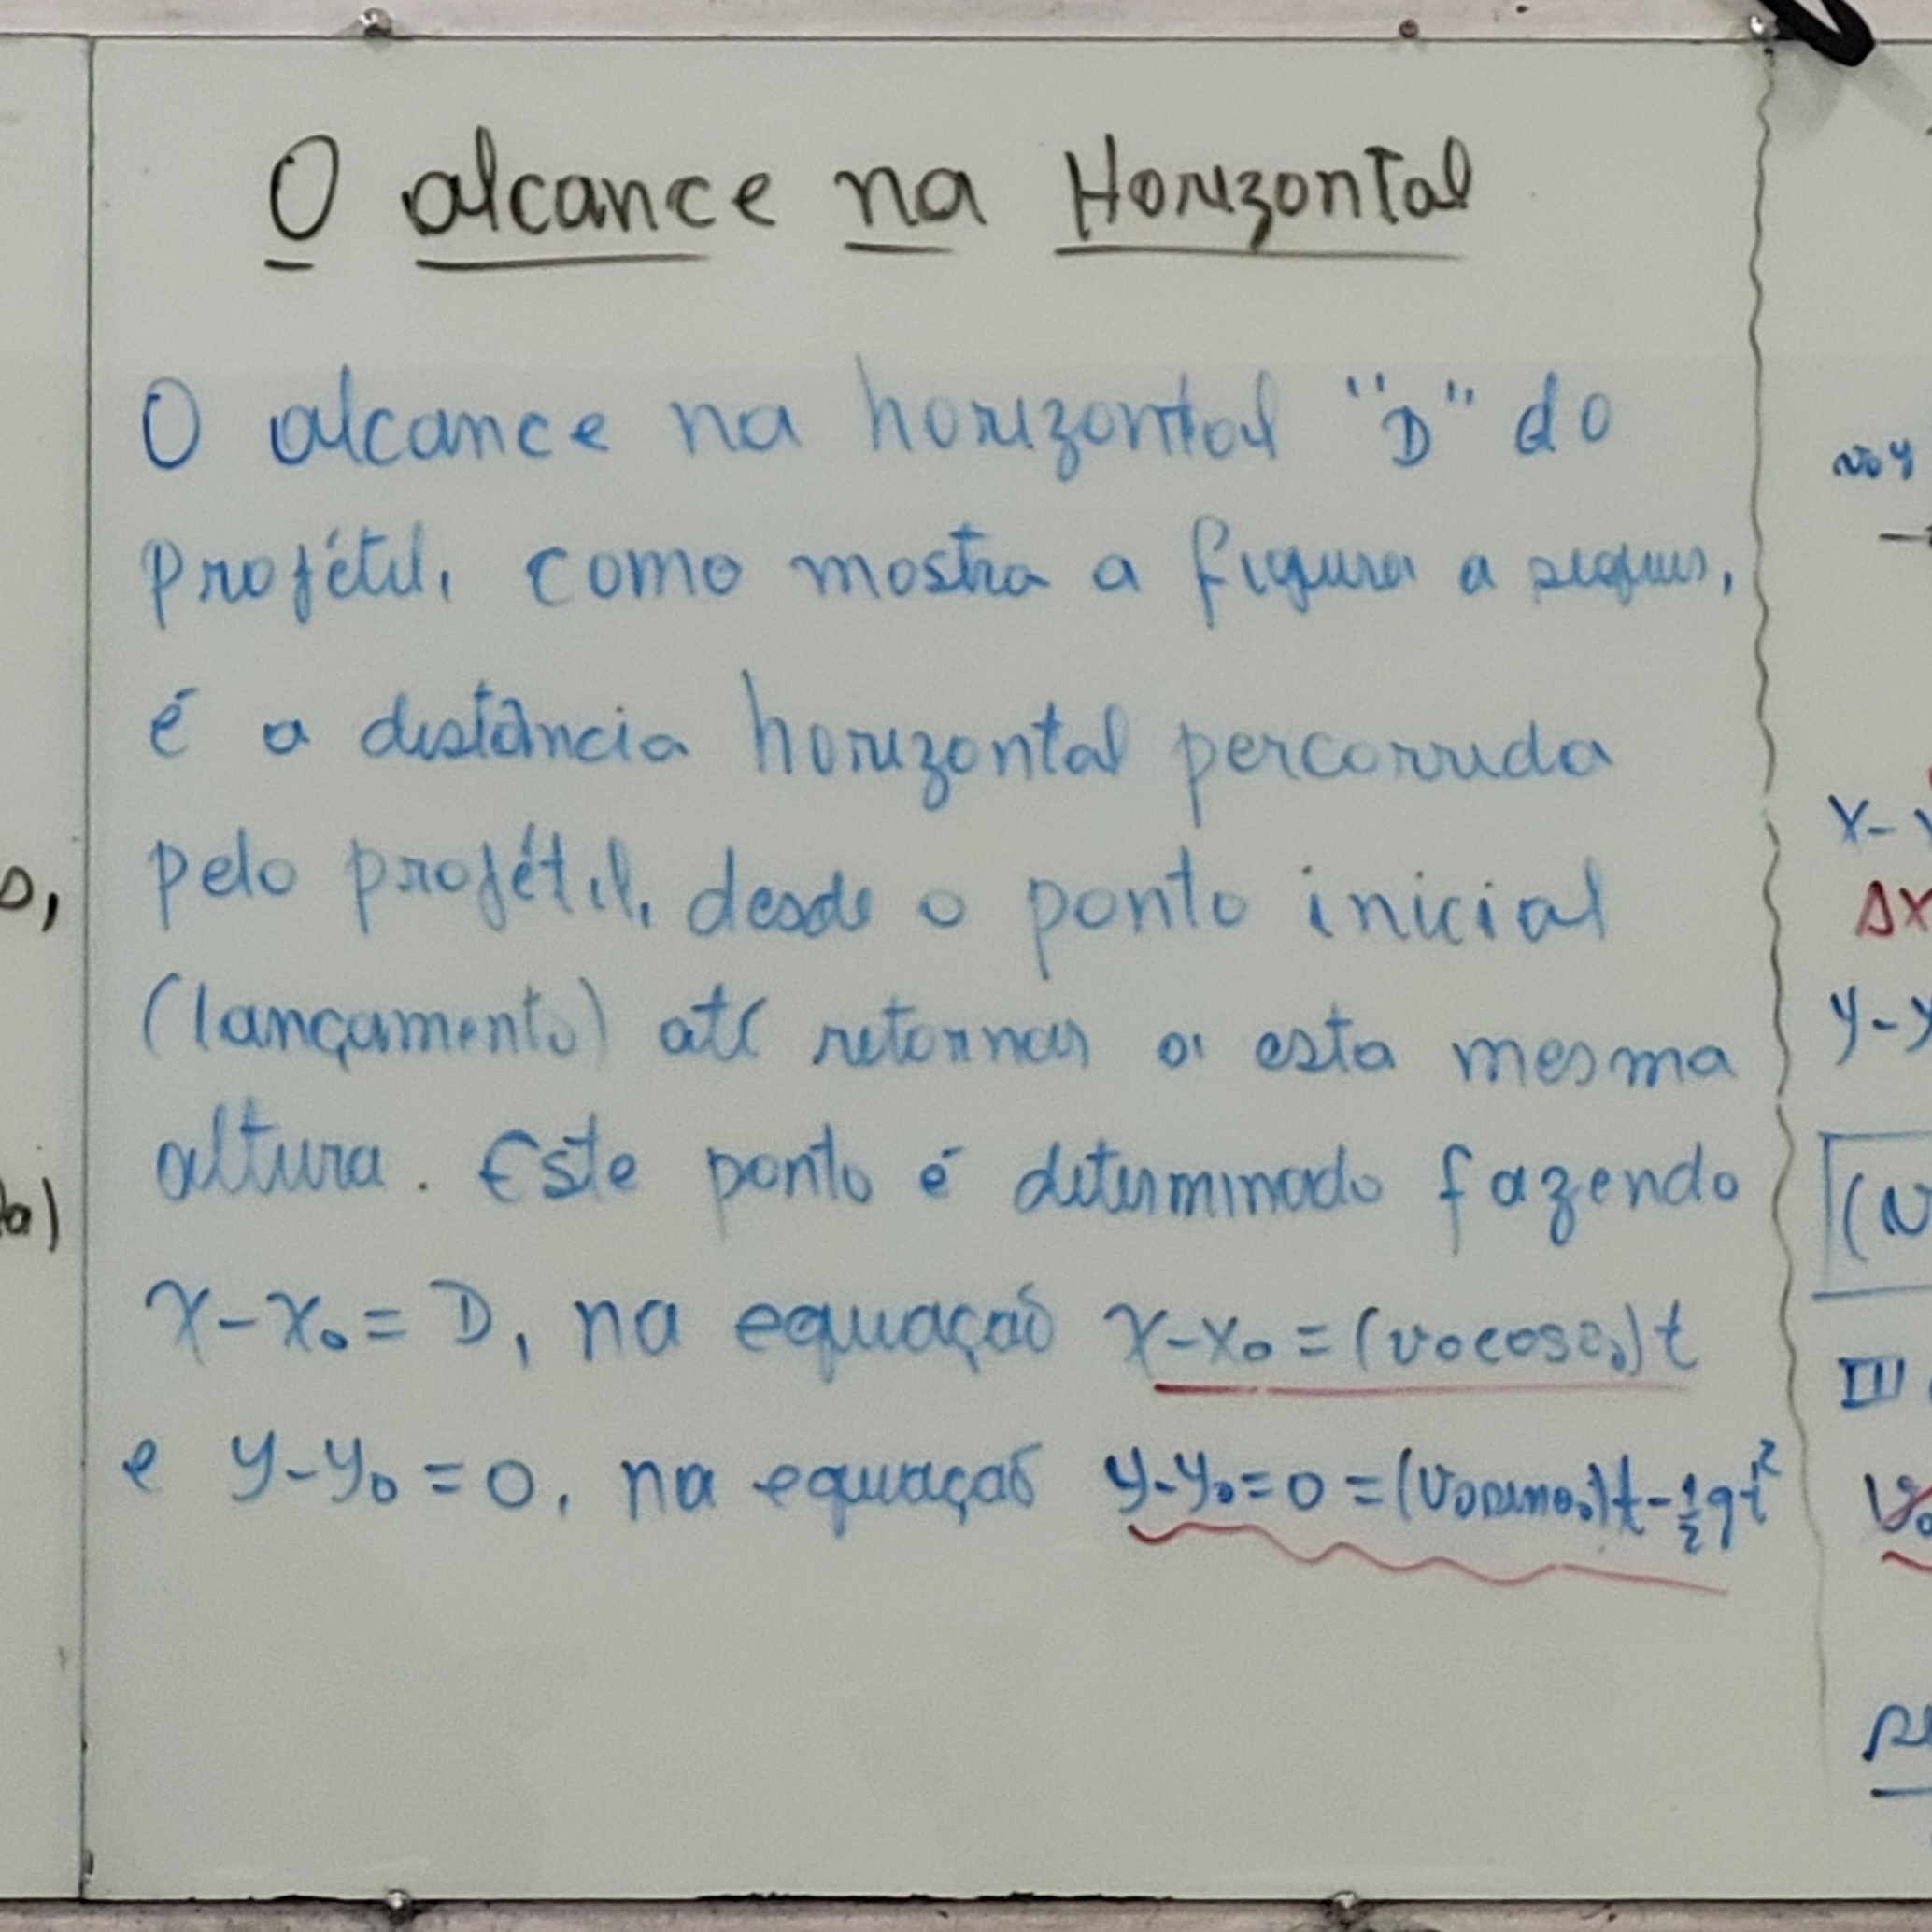 O alcance na Horizontal
O alcance na horizontal "D" do
projétil, como mostra a figura a seguir,
é a distância horizontal percorrida
pelo projétil, desde o ponto inicial
(lançamento) até retornar a esta mesma
altura. Este ponto é determinado fazendo
x-x₀ = D, na equação x-x₀ = (v₀cosθ₀)t
e y-y₀ = 0, na equação y-y₀ = 0 = (v₀senθ₀)t - ½gt²
o,
da)
v₀y
x-
Δx
y-y
(v
III
v₀